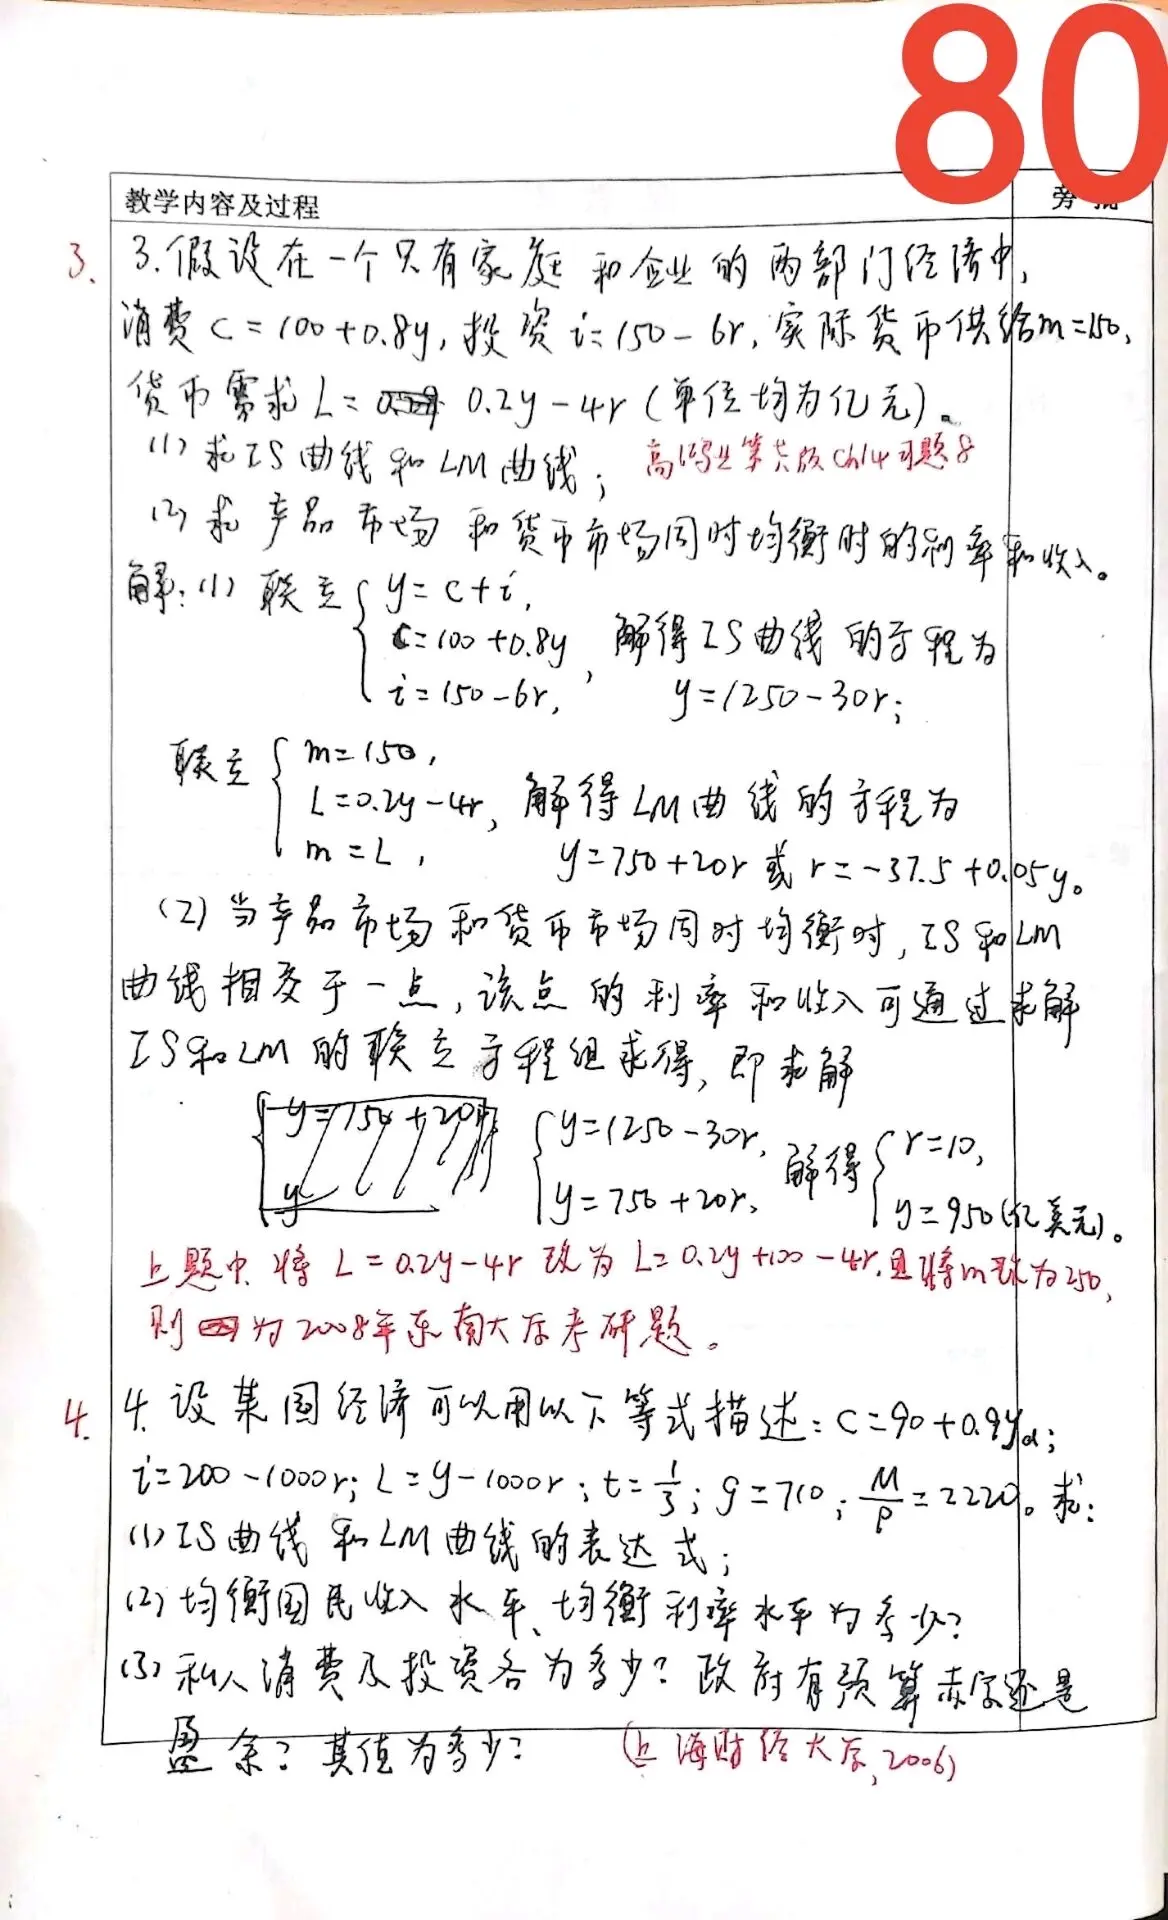 80
教学内容及过程
旁批
3. 3.假设在一个只有家庭和企业的两部门经济中,
消费c=100+0.8y,投资i=150-6r,实际货币供给m=150,
货币需求L=0.2y-4r(单位均为亿元)。
(1)求IS曲线和LM曲线;
高鸿业第六版ch14习题8
(2)求产品市场和货币市场同时均衡时的利率和收入。
解:(1)联立 y=c+i,
c=100+0.8y, 解得IS曲线的方程为
i=150-6r, y=1250-30r;
联立 m=150,
L=0.2y-4r, 解得LM曲线的方程为
m=L, y=750+20r或r=-37.5+0.05y。
(2)当产品市场和货币市场同时均衡时,IS和LM
曲线相交于一点,该点的利率和收入可通过求解
IS和LM的联立方程组求得,即求解
y=750+20r
y
y=1250-30r, 解得 r=10,
y=750+20r, y=950(亿美元)。
上题中,将L=0.2y-4r改为L=0.2y+100-4r,且将m改为250,
则为2008年东南大学考研题。
4. 4.设某国经济可以用以下等式描述:c=90+0.9yd;
i=200-1000r;L=y-1000r;t=1/3;g=710;M/P=2220。求:
(1)IS曲线和LM曲线的表达式;
(2)均衡国民收入水平、均衡利率水平为多少?
(3)私人消费及投资各为多少?政府有预算赤字还是
盈余?其值为多少? (上海财经大学,2006)